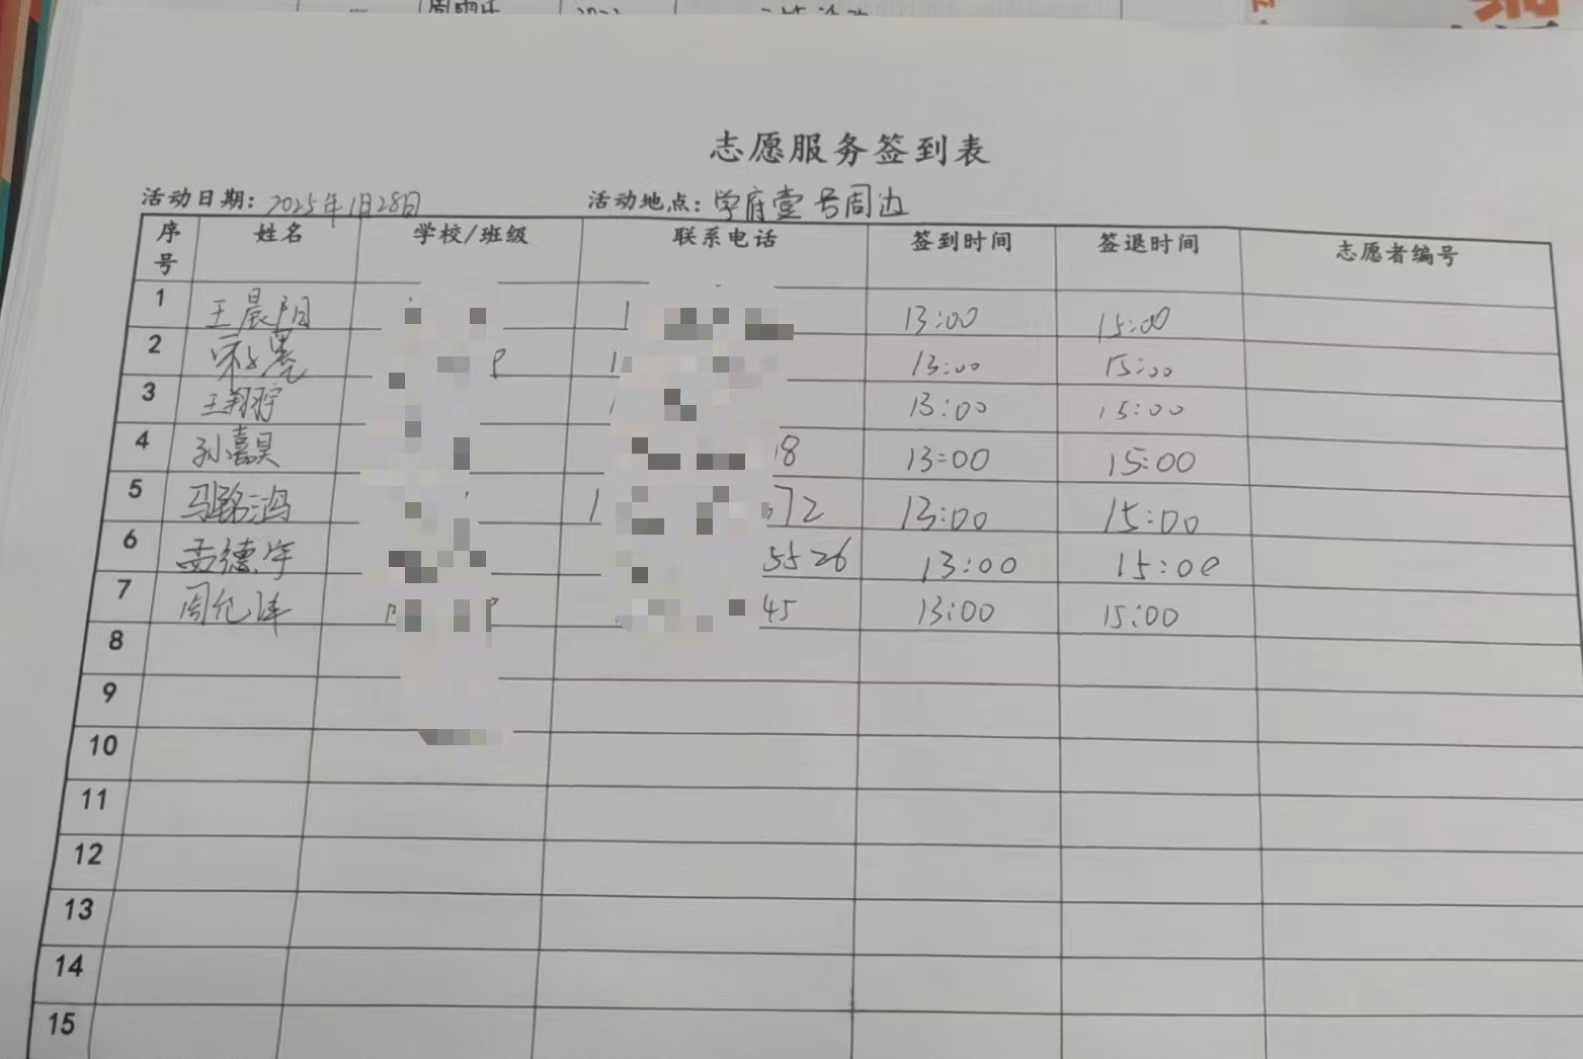 志愿服务签到表
活动日期：2025年1月28日 活动地点：学府壹号周边
序号 姓名 学校/班级 联系电话 签到时间 签退时间 志愿者编号
1 王晨阳 1 13:00 15:00
2 13:00 15:00
3 王翔宇 13:00 15:00
4 孙嘉昊 18 13:00 15:00
5 马铭鸿 1 72 13:00 15:00
6 孟德宇 5526 13:00 15:00
7 周纪泽 45 13:00 15:00
8
9
10
11
12
13
14
15